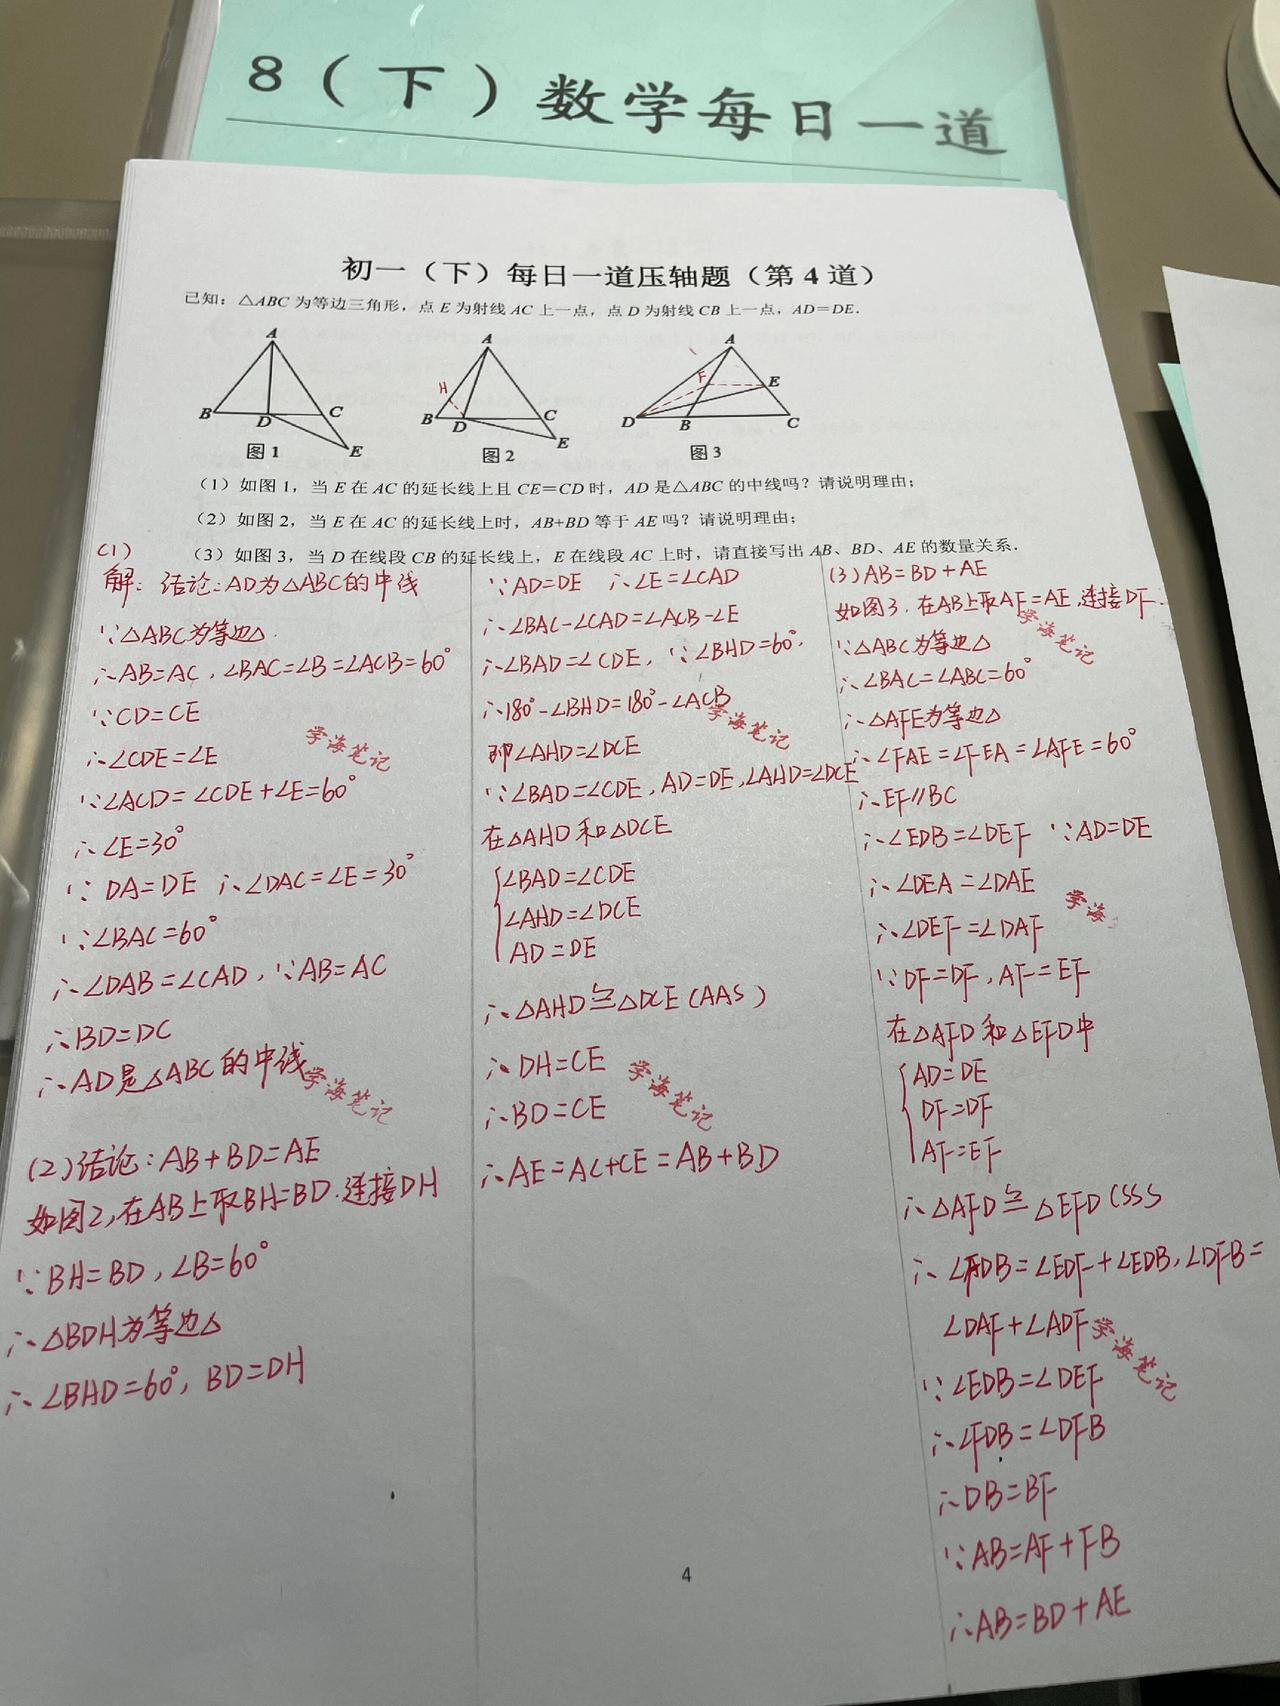 8（下）数学每日一道
初一（下）每日一道压轴题（第 4 道）
已知：△ABC 为等边三角形，点 E 为射线 AC 上一点，点 D 为射线 CB 上一点，AD＝DE．
A
B
D
C
E
图 1
A
H
B
D
C
E
图 2
A
F
E
D
B
C
图 3
（1）如图 1，当 E 在 AC 的延长线上且 CE＝CD 时，AD 是△ABC 的中线吗？请说明理由；
（2）如图 2，当 E 在 AC 的延长线上时，AB+BD 等于 AE 吗？请说明理由；
（3）如图 3，当 D 在线段 CB 的延长线上，E 在线段 AC 上时，请直接写出 AB、BD、AE 的数量关系．
(1)
解：结论：AD为△ABC的中线
∵△ABC为等边△.
∴AB=AC，∠BAC=∠B=∠ACB=60°
∵CD=CE
∴∠CDE=∠E
∵∠ACD=∠CDE+∠E=60°
∴∠E=30°
∵DA=DE ∴∠DAC=∠E=30°
∵∠BAC=60°
∴∠DAB=∠CAD，∵AB=AC
∴BD=DC
∴AD是△ABC的中线
学海笔记
学海笔记
(2)结论：AB+BD=AE
如图2,在AB上取BH=BD.连接DH
∵BH=BD，∠B=60°
∴△BDH为等边△
∴∠BHD=60°，BD=DH
∵AD=DE ∴∠E=∠CAD
∴∠BAC-∠CAD=∠ACB-∠E
∴∠BAD=∠CDE，∵∠BHD=60°.
∴180°-∠BHD=180°-∠ACB
即∠AHD=∠DCE
∵∠BAD=∠CDE，AD=DE,∠AHD=∠DCE
在△AHD和△DCE
∠BAD=∠CDE
∠AHD=∠DCE
AD=DE
∴△AHD≌△DCE(AAS)
∴DH=CE
∴BD=CE
∴AE=AC+CE=AB+BD
学海笔记
学海笔记
(3)AB=BD+AE
如图3.在AB上取AF=AE,连接DF.
∵△ABC为等边△
∴∠BAC=∠ABC=60°
∴△AFE为等边△
∴∠FAE=∠FEA=∠AFE=60°
∴EF∥BC
∴∠EDB=∠DEF ∵AD=DE
∴∠DEA=∠DAE
∴∠DEF=∠DAF
∵DF=DF，AF=EF
在△AFD和△EFD中
AD=DE
DF=DF
AF=EF
∴△AFD≌△EFD(SSS
∴∠FDB=∠EDF+∠EDB,∠DFB=
∠DAF+∠ADF
∵∠EDB=∠DEF
∴∠FDB=∠DFB
∴DB=BF
∵AB=AF+FB
∴AB=BD+AE
学海笔记
学海
学海笔记
4